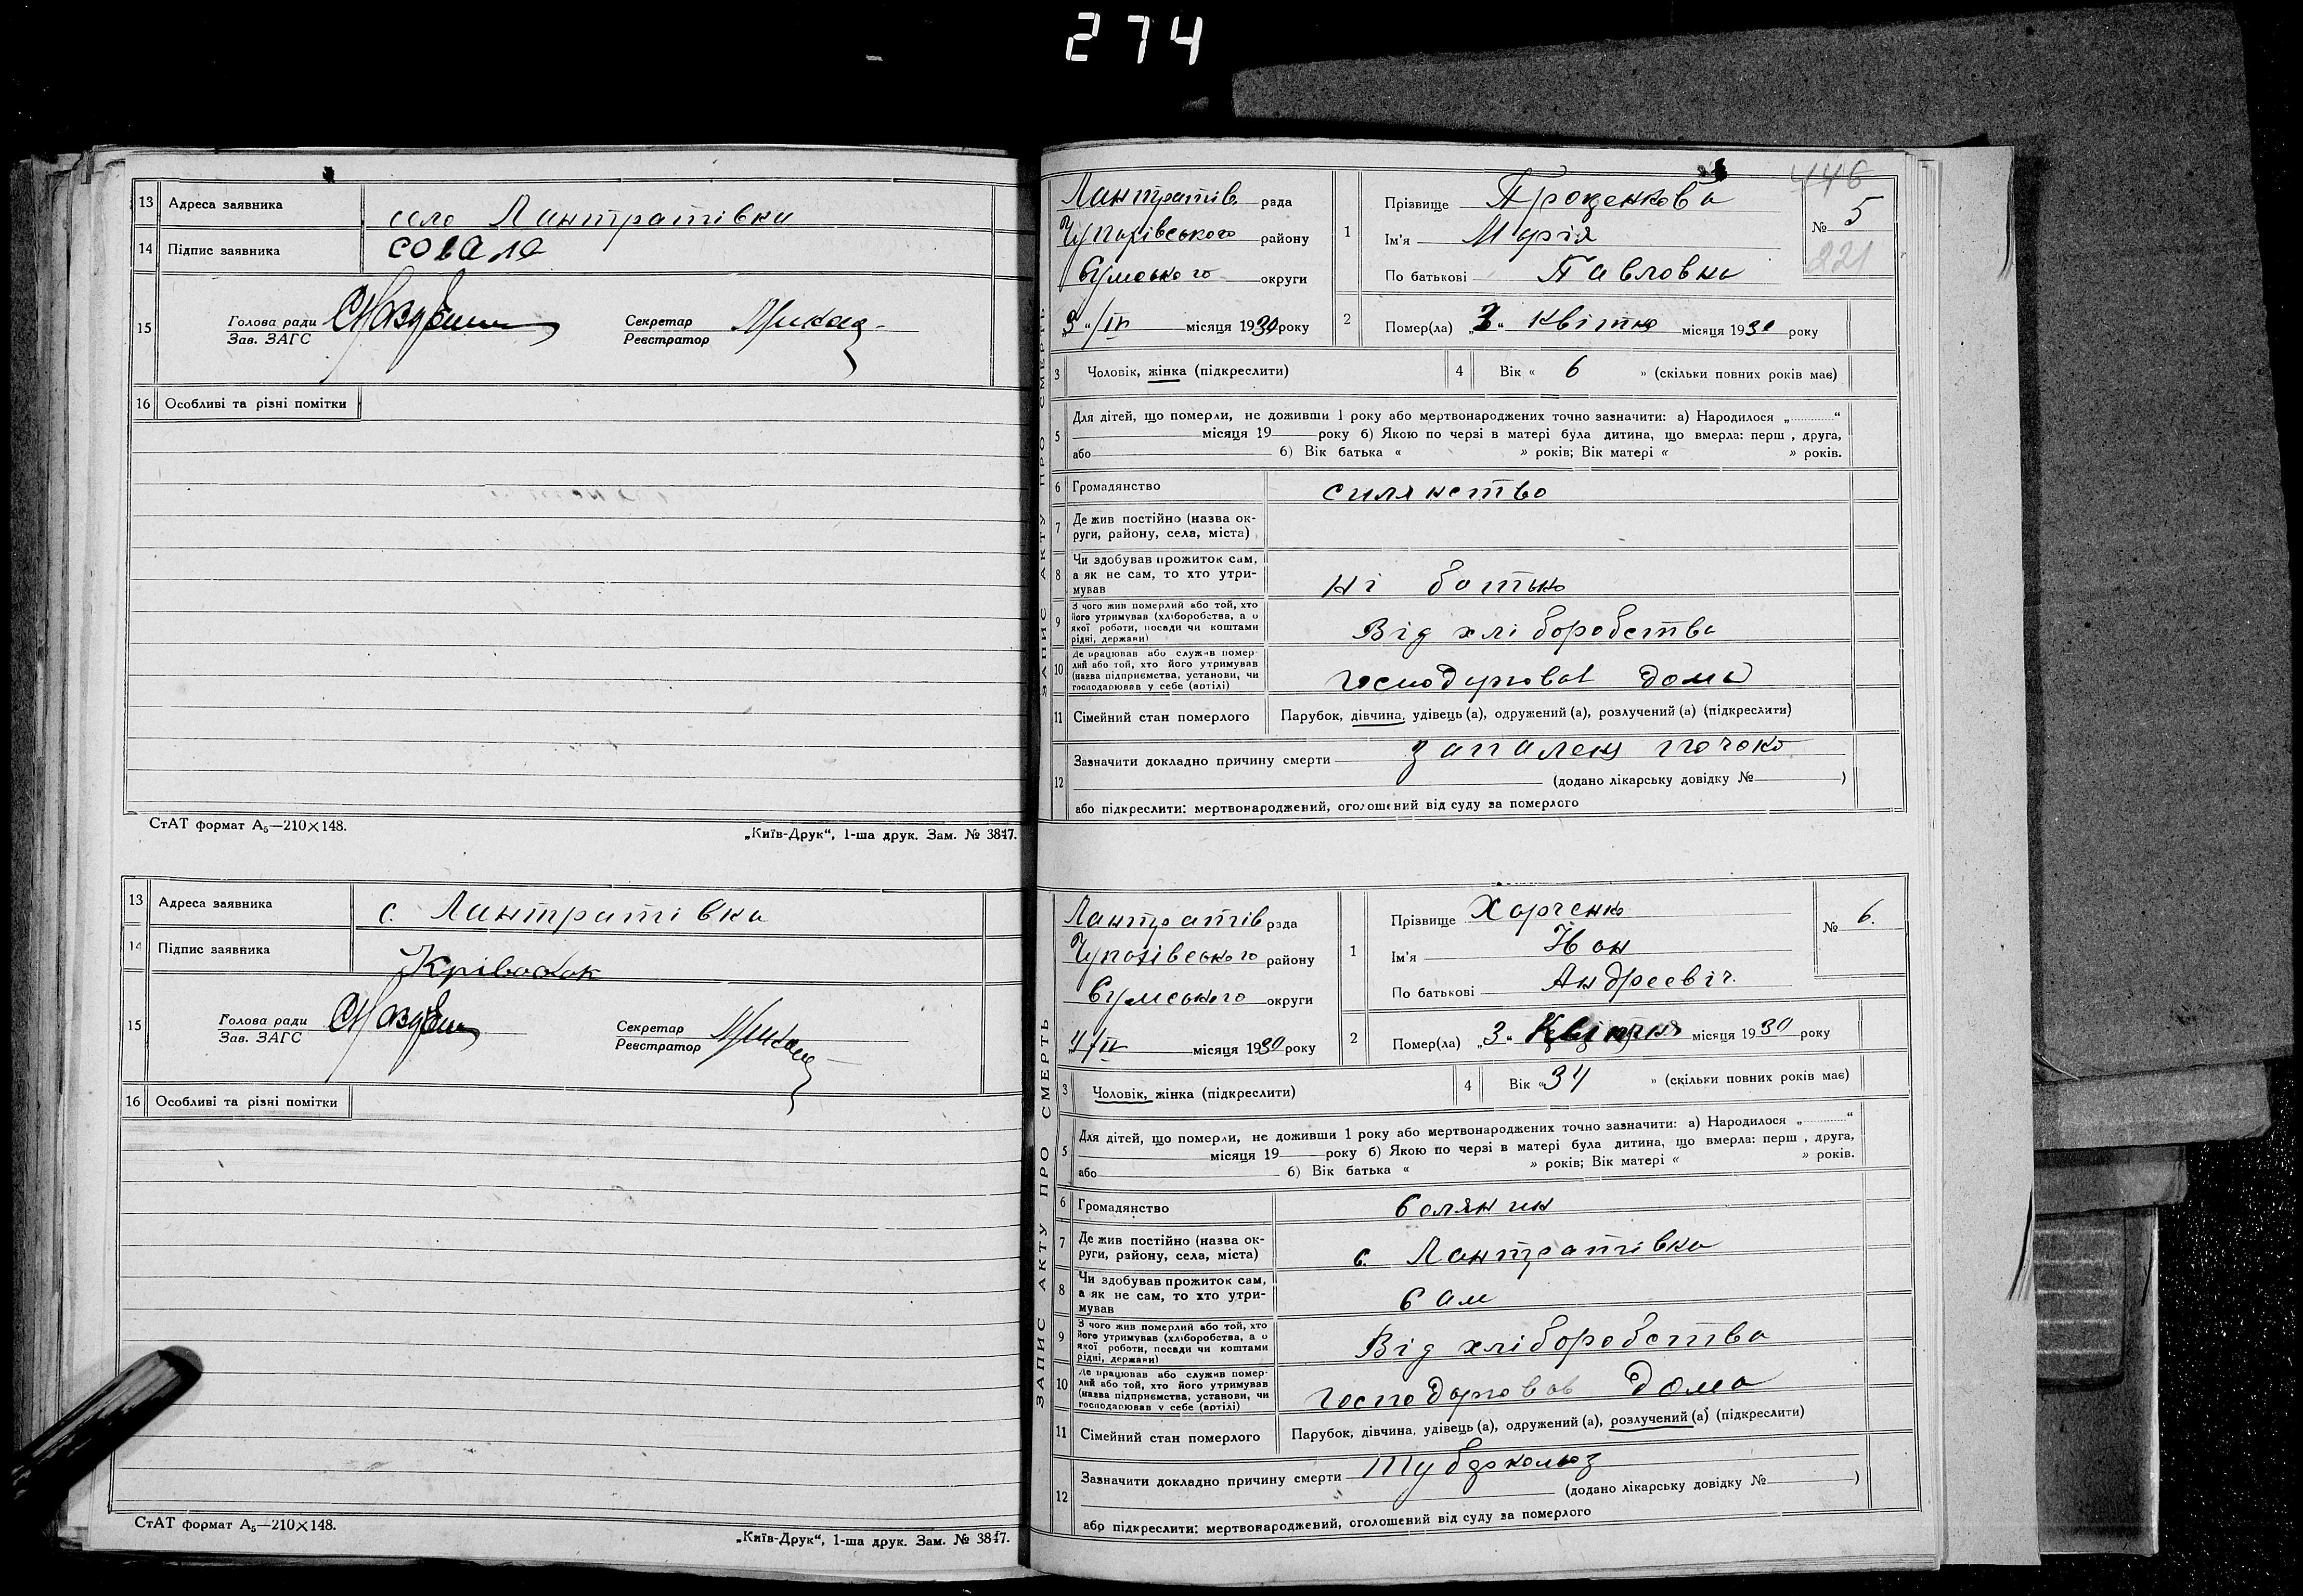 274
13 Адреса заявника село Лантратівка
14 Підпис заявника совало
15 Голова ради Секретар
Зав. ЗАГС Реєстратор
16 Особливі та різні помітки
СтАТ формат А₅—210×148. „Київ-Друк“, 1-ша друк. Зам. № 3847.
13 Адреса заявника с. Лантратівка
14 Підпис заявника
15 Голова ради Секретар
Зав. ЗАГС Реєстратор
16 Особливі та різні помітки
СтАТ формат А₅—210×148. „Київ-Друк“, 1-ша друк. Зам. № 3847.
446
ЗАПИС АКТУ ПРО СМЕРТЬ
Лантратів рада
Чупахівського району
Сумського округи
„3“/IV місяця 1930 року
1 Прізвище Проценкова
Ім'я Марія
По батькові Павловна
№ 5
221
2 Помер(ла) „3“ квітня місяця 1930 року
3 Чоловік, жінка (підкреслити) 4 Вік « 6 » (скільки повних років має)
5 Для дітей, що померли, не доживши 1 року або мертвонароджених точно зазначити: а) Народилося „ “
місяця 19 року б) Якою по черзі в матері була дитина, що вмерла: перш , друга,
або б) Вік батька « » років; Вік матері « » років.
6 Громадянство силянство
7 Де жив постійно (назва ок-
руги, району, села, міста)
8 Чи здобував прожиток сам,
а як не сам, то хто утри-
мував ні батько
9 З чого жив померлий або той, хто
його утримував (хліборобства, а о
якої роботи, посади чи коштами
рідні, держави) Від хліборобства
10 Де працював або служив помер-
лий або той, хто його утримував
(назва підприємства, установи, чи
господарював у себе (артілі) господарював дома
11 Сімейний стан померлого Парубок, дівчина, удівець (а), одружений (а), розлучений (а) (підкреслити)
12 Зазначити докладно причину смерти
(додано лікарську довідку № )
або підкреслити: мертвонароджений, оголошений від суду за померлого
ЗАПИС АКТУ ПРО СМЕРТЬ
Лантратів рада
Чупахівського району
Сумського округи
„4“/IV місяця 1930 року
1 Прізвище Харченко
Ім'я Іван
По батькові Андреевіч.
№ 6.
2 Помер(ла) „3“ Квітня місяця 1930 року
3 Чоловік, жінка (підкреслити) 4 Вік « 34 » (скільки повних років має)
5 Для дітей, що померли, не доживши 1 року або мертвонароджених точно зазначити: а) Народилося „ “
місяця 19 року б) Якою по черзі в матері була дитина, що вмерла: перш , друга,
або б) Вік батька « » років; Вік матері « » років.
6 Громадянство Селянин
7 Де жив постійно (назва ок-
руги, району, села, міста) с. Лантратівка
8 Чи здобував прожиток сам,
а як не сам, то хто утри-
мував Сам
9 З чого жив померлий або той, хто
його утримував (хліборобства, а о
якої роботи, посади чи коштами
рідні, держави) Від хліборобства
10 Де працював або служив помер-
лий або той, хто його утримував
(назва підприємства, установи, чи
господарював у себе (артілі) господаровав дома
11 Сімейний стан померлого Парубок, дівчина, удівець (а), одружений (а), розлучений (а) (підкреслити)
12 Зазначити докладно причину смерти туберкольоз
(додано лікарську довідку № )
або підкреслити: мертвонароджений, оголошений від суду за померлого